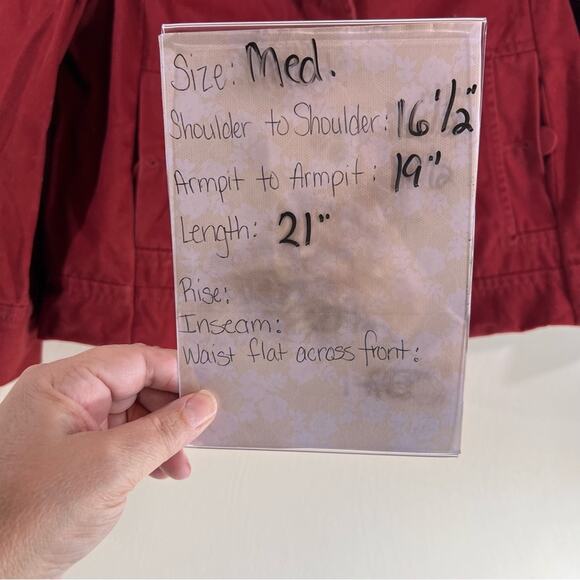 Size: Med.
Shoulder to Shoulder: 16 1/2"
Armpit to Armpit: 19"
Length: 21"
Rise:
Inseam:
Waist flat across front: